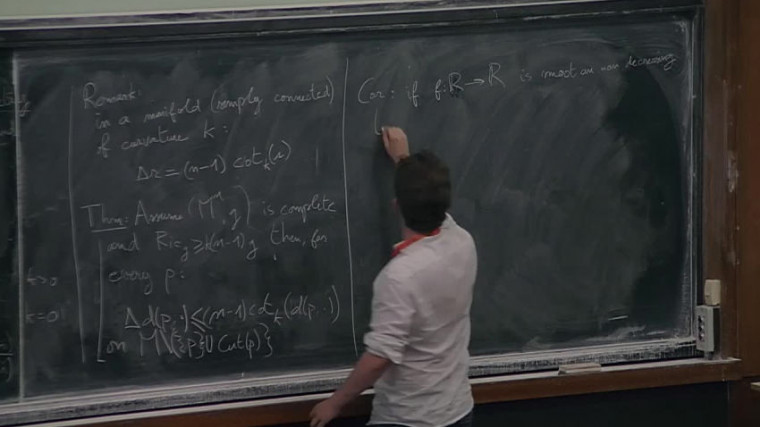 Remark:
in a manifold (simply connected)
of curvature k:
Δr = (n-1) cot_k(r)
Thm: Assume (M^n, g) is complete
and Ric_g ≥ k(n-1)g, then, for
every p:
Δd(p, ·) ≤ (n-1) cot_k(d(p, ·))
on M\({p} ∪ Cut(p))
k>0
k=0
Cor: if f: ℝ → ℝ is smooth non decreasing